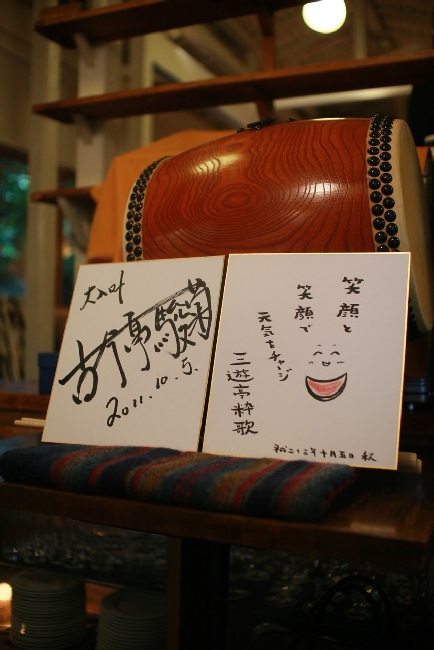 大入叶
古今亭駿菊
2011.10.5.
笑顔と
笑顔で
元気をチャージ
三遊亭粋歌
平成二十三年十月五日 秋